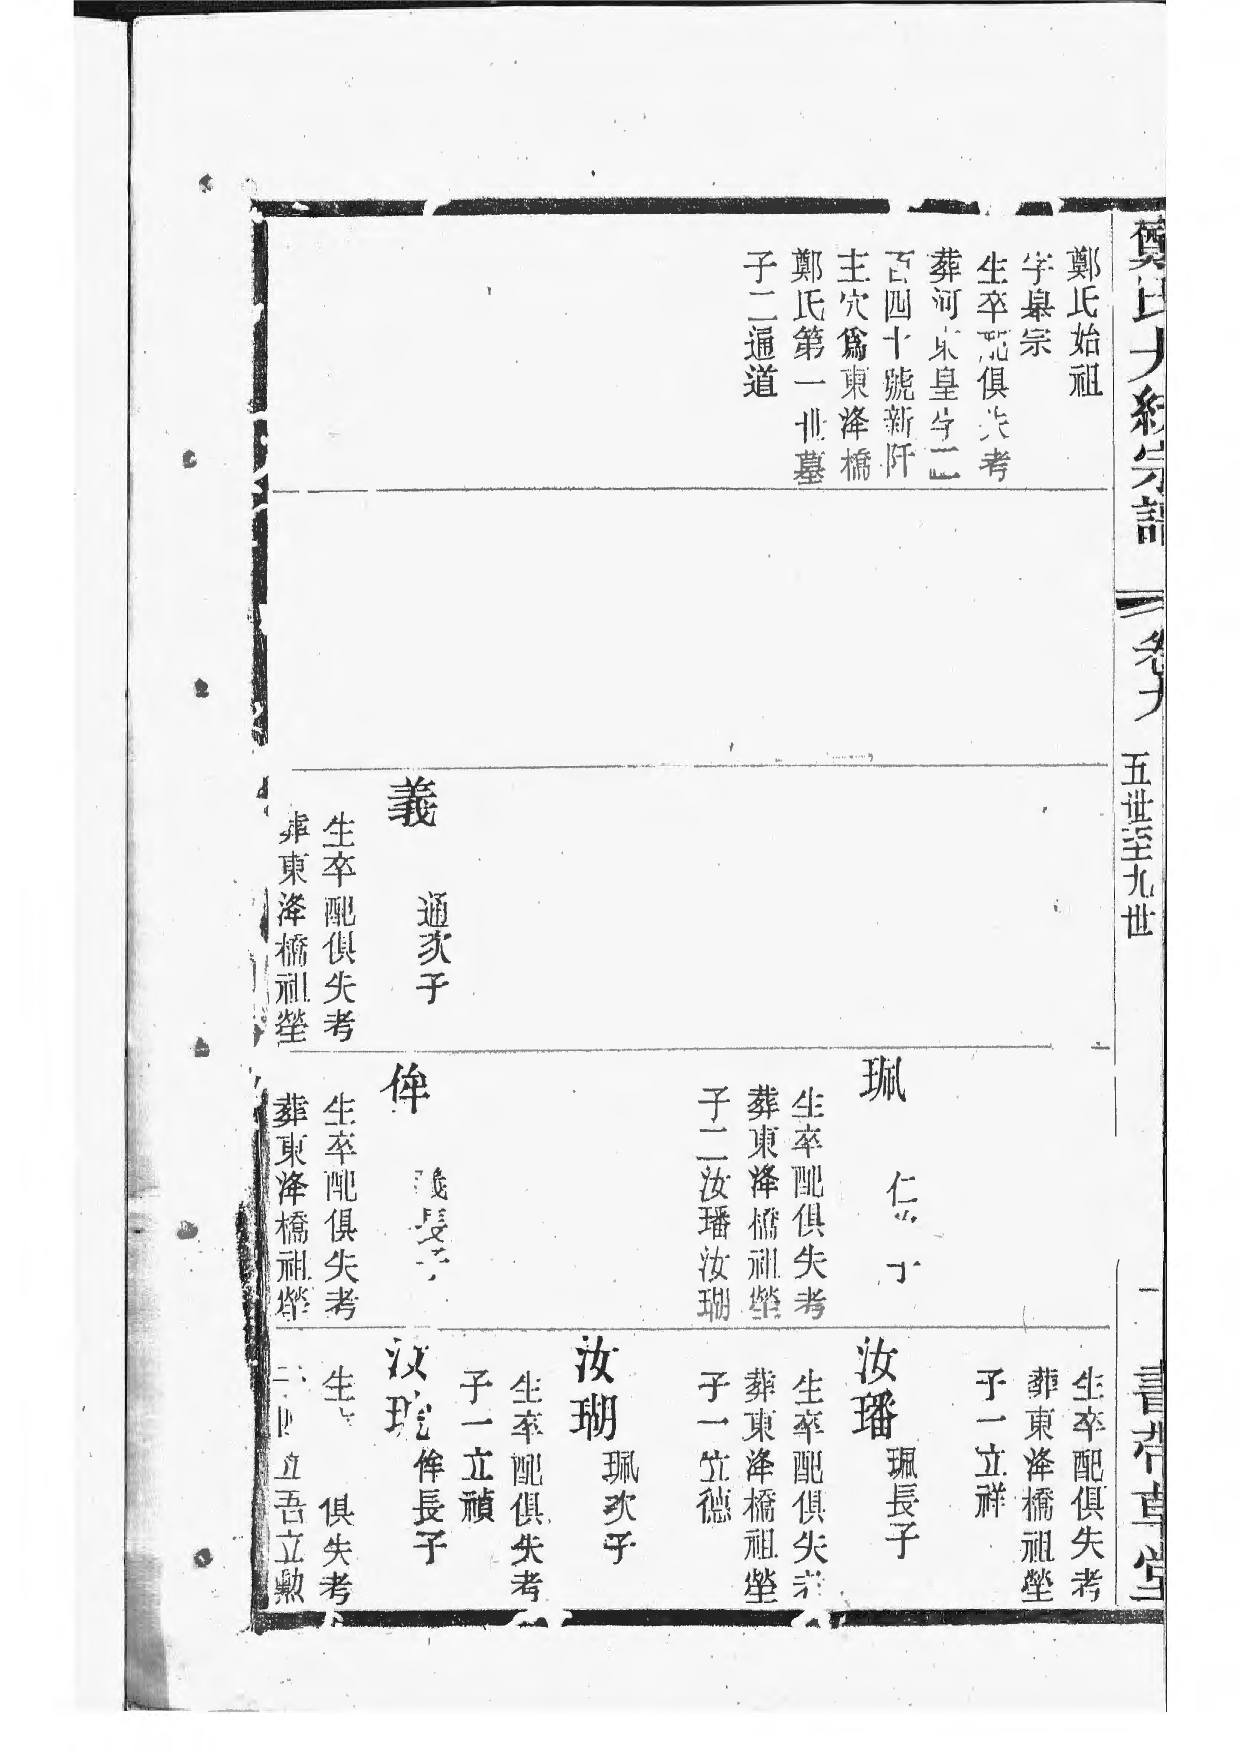 鄭氏大統宗譜
卷九
五世至九世
一
書帶草堂
鄭氏始祖
字皋宗
生卒配俱失考
葬河東皇字二
百四十號新阡
主穴爲東洚橋
鄭氏第一世墓
子二通道
義
通次子
生卒配俱失考
葬東洚橋祖塋
珮
仁 子
生卒配俱失考
葬東洚橋祖塋
子二汝璠汝瑚
侔
義長子
生卒配俱失考
葬東洚橋祖塋
生卒配俱失考
葬東洚橋祖塋
子一立祥
汝璠
珮長子
生卒配俱失考
葬東洚橋祖塋
子一立德
汝瑚
珮次子
生卒配俱失考
子一立禎
汝
侔長子
生 俱失考
立吾立勲